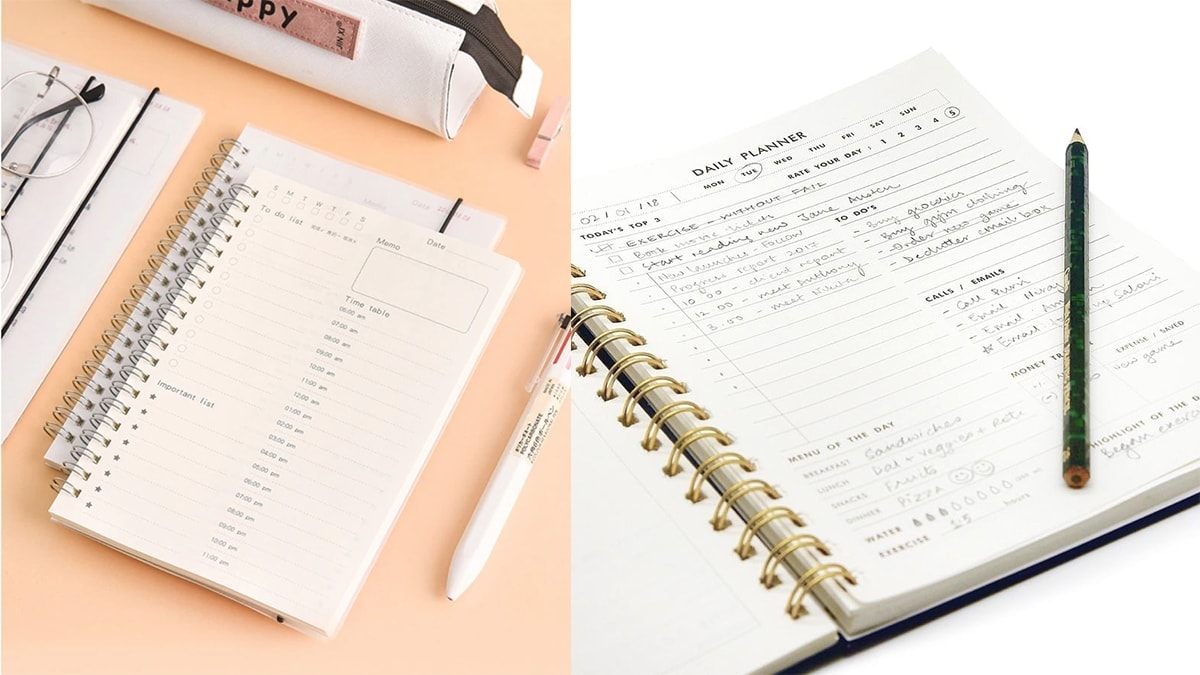 ppy
S M T W T F S
To do list
Memo
Date
Time table
06:00 am
07:00 am
08:00 am
09:00 am
10:00 am
11:00 am
12:00 am
01:00 pm
02:00 pm
03:00 pm
04:00 pm
05:00 pm
06:00 pm
07:00 pm
08:00 pm
09:00 pm
10:00 pm
11:00 pm
Important list
Memo
Date
POLYCARBONATE
DAILY PLANNER
02 / 01 / 18
MON TUE WED THU FRI SAT SUN
RATE YOUR DAY : 1 2 3 4 5
TODAY'S TOP 3
EXERCISE - WITHOUT FAIL
Book movie tickets
Start reading new Jane Austen
New launches - Follow
Progress report 2017
10.00 - client repant
12.00 - meet Anthony
3.00 - meet Nikita
TO DO'S
- Buy groceries
- Buy gym clothing
- Order new game
- Declutter email box
CALLS / EMAILS
- Call
- Email
- Email
Email
MONEY
EXPENSE / SAVED
new game
MENU OF THE DAY
BREAKFAST Sandwiches
LUNCH Dal + veggies + Roti
SNACKS Fruits
DINNER Pizza
WATER
EXERCISE 1.5 hours
HIGHLIGHT OF THE
Began